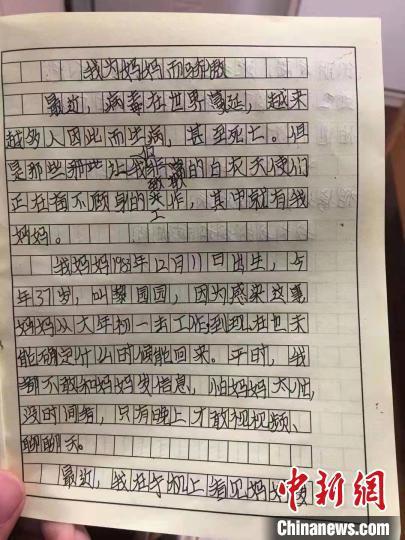 我为妈妈而骄傲
最近，病毒在世界蔓延，越来
越多人因此而生病，甚至死亡。但
是那些让我们尊敬的白衣天使们
正在奋不顾身的工作，其中就有我
妈妈。
我妈妈1983年12月11日出生，今
年37岁，叫黎园园，因为感染这事
妈妈从大年初一去工作，到现在也未
能确定什么时候能回来。平时，我
都不敢和妈妈发信息，怕妈妈太忙，
没时间看，只有晚上才敢视视频、
聊聊天。
最近，我在手机上看见妈妈变
中新网
Chinanews.com